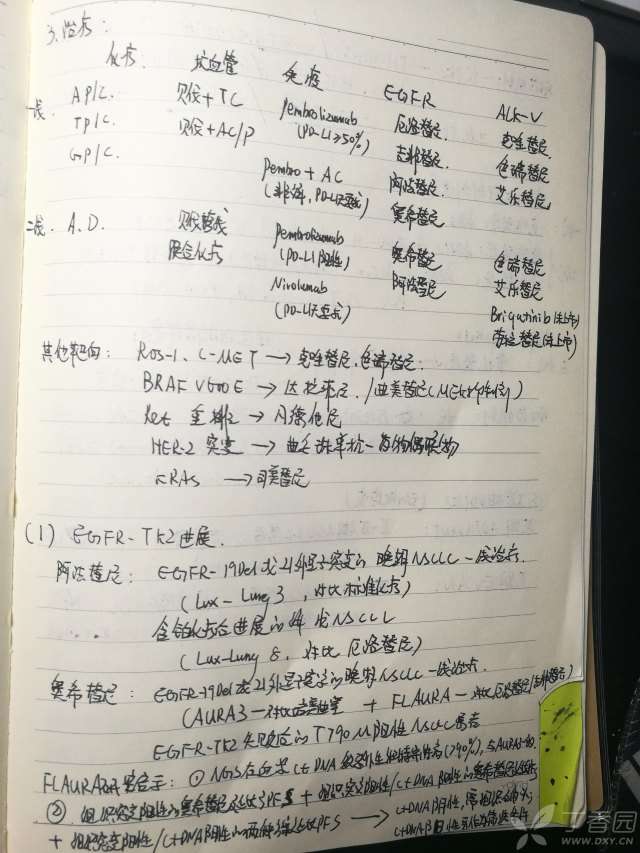 3. 治疗:
化疗 抗血管 免疫 EGFR ALK-V
一线 AP/C. 贝伐+TC Pembrolizumab 厄洛替尼 克唑替尼
TP/C. 贝伐+AC/P (PD-L1≥50%) 吉非替尼 色瑞替尼
GP/C. Pembro + AC 阿法替尼 艾乐替尼
(非鳞, PD-L1无要求) 奥希替尼
二线 A. D. 贝伐 Pembrolizumab 奥希替尼 色瑞替尼
联合化疗 (PD-L1阳性) 阿法替尼 艾乐替尼
Nivolumab Brigatinib (未上市)
(PD-L1无要求) 替尼(未上市)
其他靶向: ROS-1. C-MET → 克唑替尼. 色瑞替尼.
BRAF V600E → 达拉菲尼. /曲美替尼(MEK抑制剂)
Ret 重排 → 凡德他尼
HER-2 突变 → 曲妥珠单抗-药物偶联物
KRAS → 司美替尼
(1) EGFR-TKI进展.
阿法替尼: EGFR-19Del或21外显子突变的晚期NSCLC一线治疗.
(Lux-Lung 3, 对比标准化疗)
含铂化疗后进展的鳞状NSCLC
(Lux-Lung 8, 对比厄洛替尼)
奥希替尼: EGFR-19Del或21外显子突变的晚期NSCLC一线治疗.
(AURA3-对比培美曲塞 + FLAURA-对比厄洛替尼/吉非替尼)
EGFR-TKI失败后的T790M阳性NSCLC患者
FLAURA 提示: ① NGS在血浆ctDNA 特异性高(>90%), 与AURA
② 组织突变阳性 奥希替尼 PFS + 组织突变阳性/ctDNA阳性的奥希替尼
+ 组织突变阳性/ctDNA阴性的两种 PFS → ctDNA阴性, 需组织
ctDNA阳性可作为
丁香园
WWW.DXY.CN